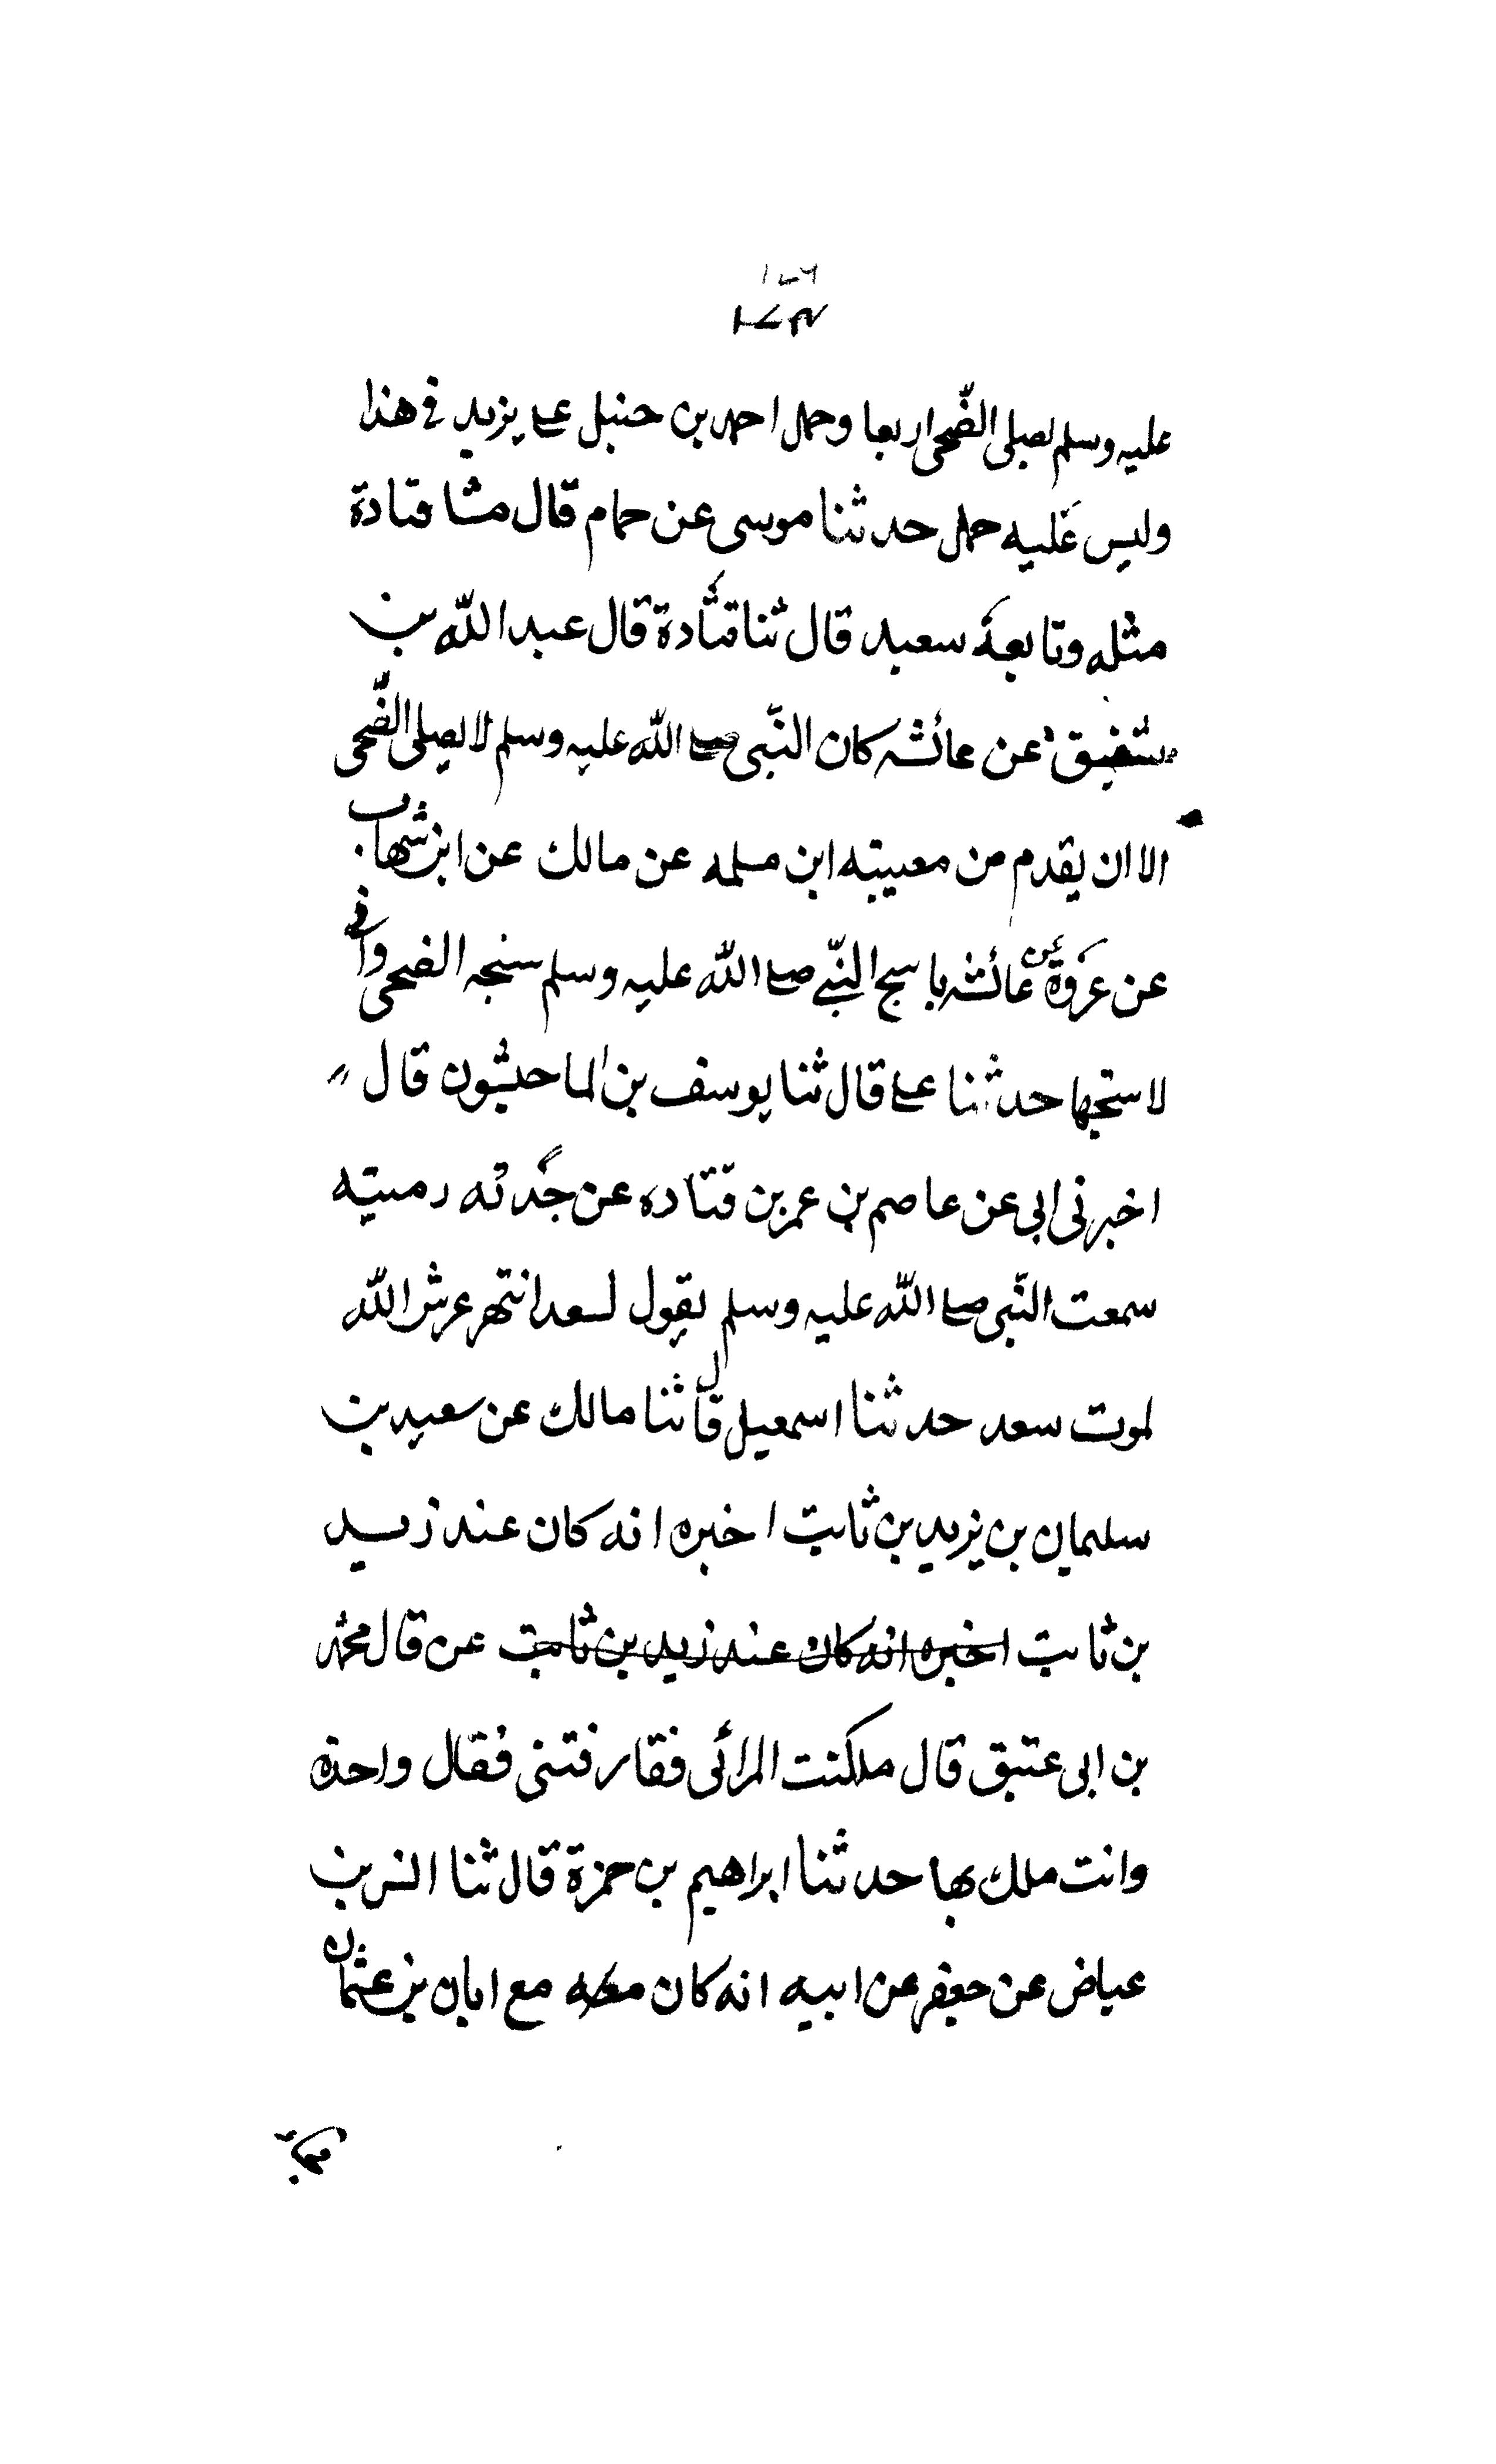 عليه وسلم يصلى الضّحى اربعا وحمل احمد بن حنبل على يزيد فى هذا
وليس عَليه حمل حدثنا موسى عن حمام قال مثنا قتادة
مثله وتابعهُ سعيد قال ثنا قتادة قال عبد الله بن
شقيق عن عائشه كان النّبى صلى الله عليه وسلم لا يصلى الضّحى
الا ان يقدم من مغيبته ابن مسلمه عن مالك عن ابن شهاب
عن عروة عن عائشه يا سبح النّبى صلى الله عليه وسلم سنجه الضحى وانى
لا ستجها حدثنا على قال ثنا يوسف بن الماحشون قال
اخبرنى ابى عن عاصم بن عمر بن قتاده عن جدته رميته
سمعت النّبى صلى الله عليه وسلم يقول لسعد انتهر عرش الله
لموت سعد حدثنا اسمعيل قال ثنا مالك عن سعيد بن
سليمان بن يزيد بن ثابت اخبره انه كان عند زيد
بن ثابت اخبره انه كان عند زيد بن ثابت عن قال محمد
بن ابى عتيق قال ملكنت المرائى فقارفتنى فقال واحدة
وانت ملك بها حدثنا ابراهيم بن حمزة قال ثنا انس بن
عياض عن جعفر عن ابيه انه كان معه مع ابان بن عثمان